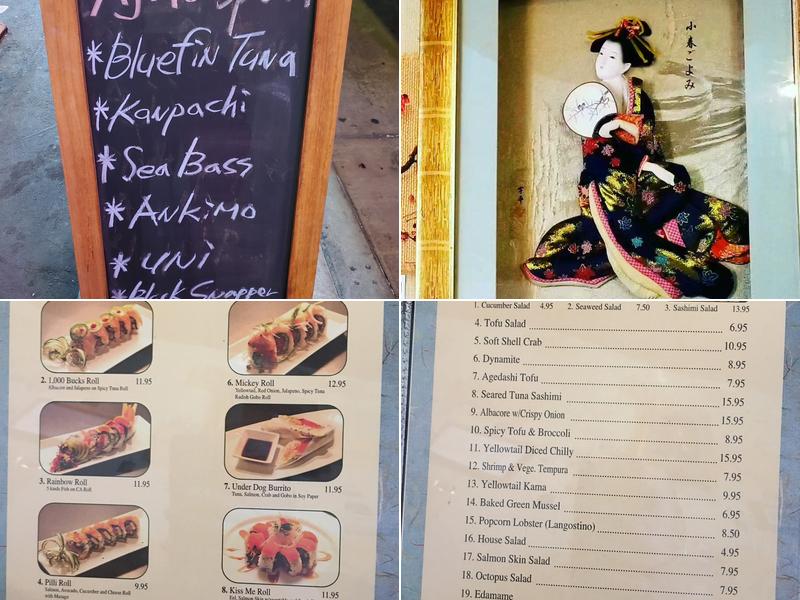 *Bluefin Tuna
*Kanpachi
*Sea Bass
*Ankimo
*uni
Snapper
小春ごよみ
2. 1,000 Bucks Roll 11.95
Albacore and Jalapeno on Spicy Tuna Roll
6. Mickey Roll 12.95
Yellowtail, Red Onion, Jalapeno, Spicy Tuna
Radish Gobo Roll
3. Rainbow Roll 11.95
5 kinds Fish on CA Roll
7. Under Dog Burrito 11.95
Tuna, Salmon, Crab and Gobo in Soy Paper
4. Pilli Roll 9.95
Salmon, Avocado, Cucumber and Cheese Roll
with Masago
8. Kiss Me Roll 11.95
1. Cucumber Salad 4.95 2. Seaweed Salad 7.50 3. Sashimi Salad 13.95
4. Tofu Salad 6.95
5. Soft Shell Crab 10.95
6. Dynamite 8.95
7. Agedashi Tofu 7.95
8. Seared Tuna Sashimi 15.95
9. Albacore w/Crispy Onion 15.95
10. Spicy Tofu & Broccoli 8.95
11. Yellowtail Diced Chilly 15.95
12. Shrimp & Vege. Tempura 7.95
13. Yellowtail Kama 9.95
14. Baked Green Mussel 6.95
15. Popcorn Lobster (Langostino) 8.50
16. House Salad 4.95
17. Salmon Skin Salad 7.95
18. Octopus Salad 7.95
19. Edamame